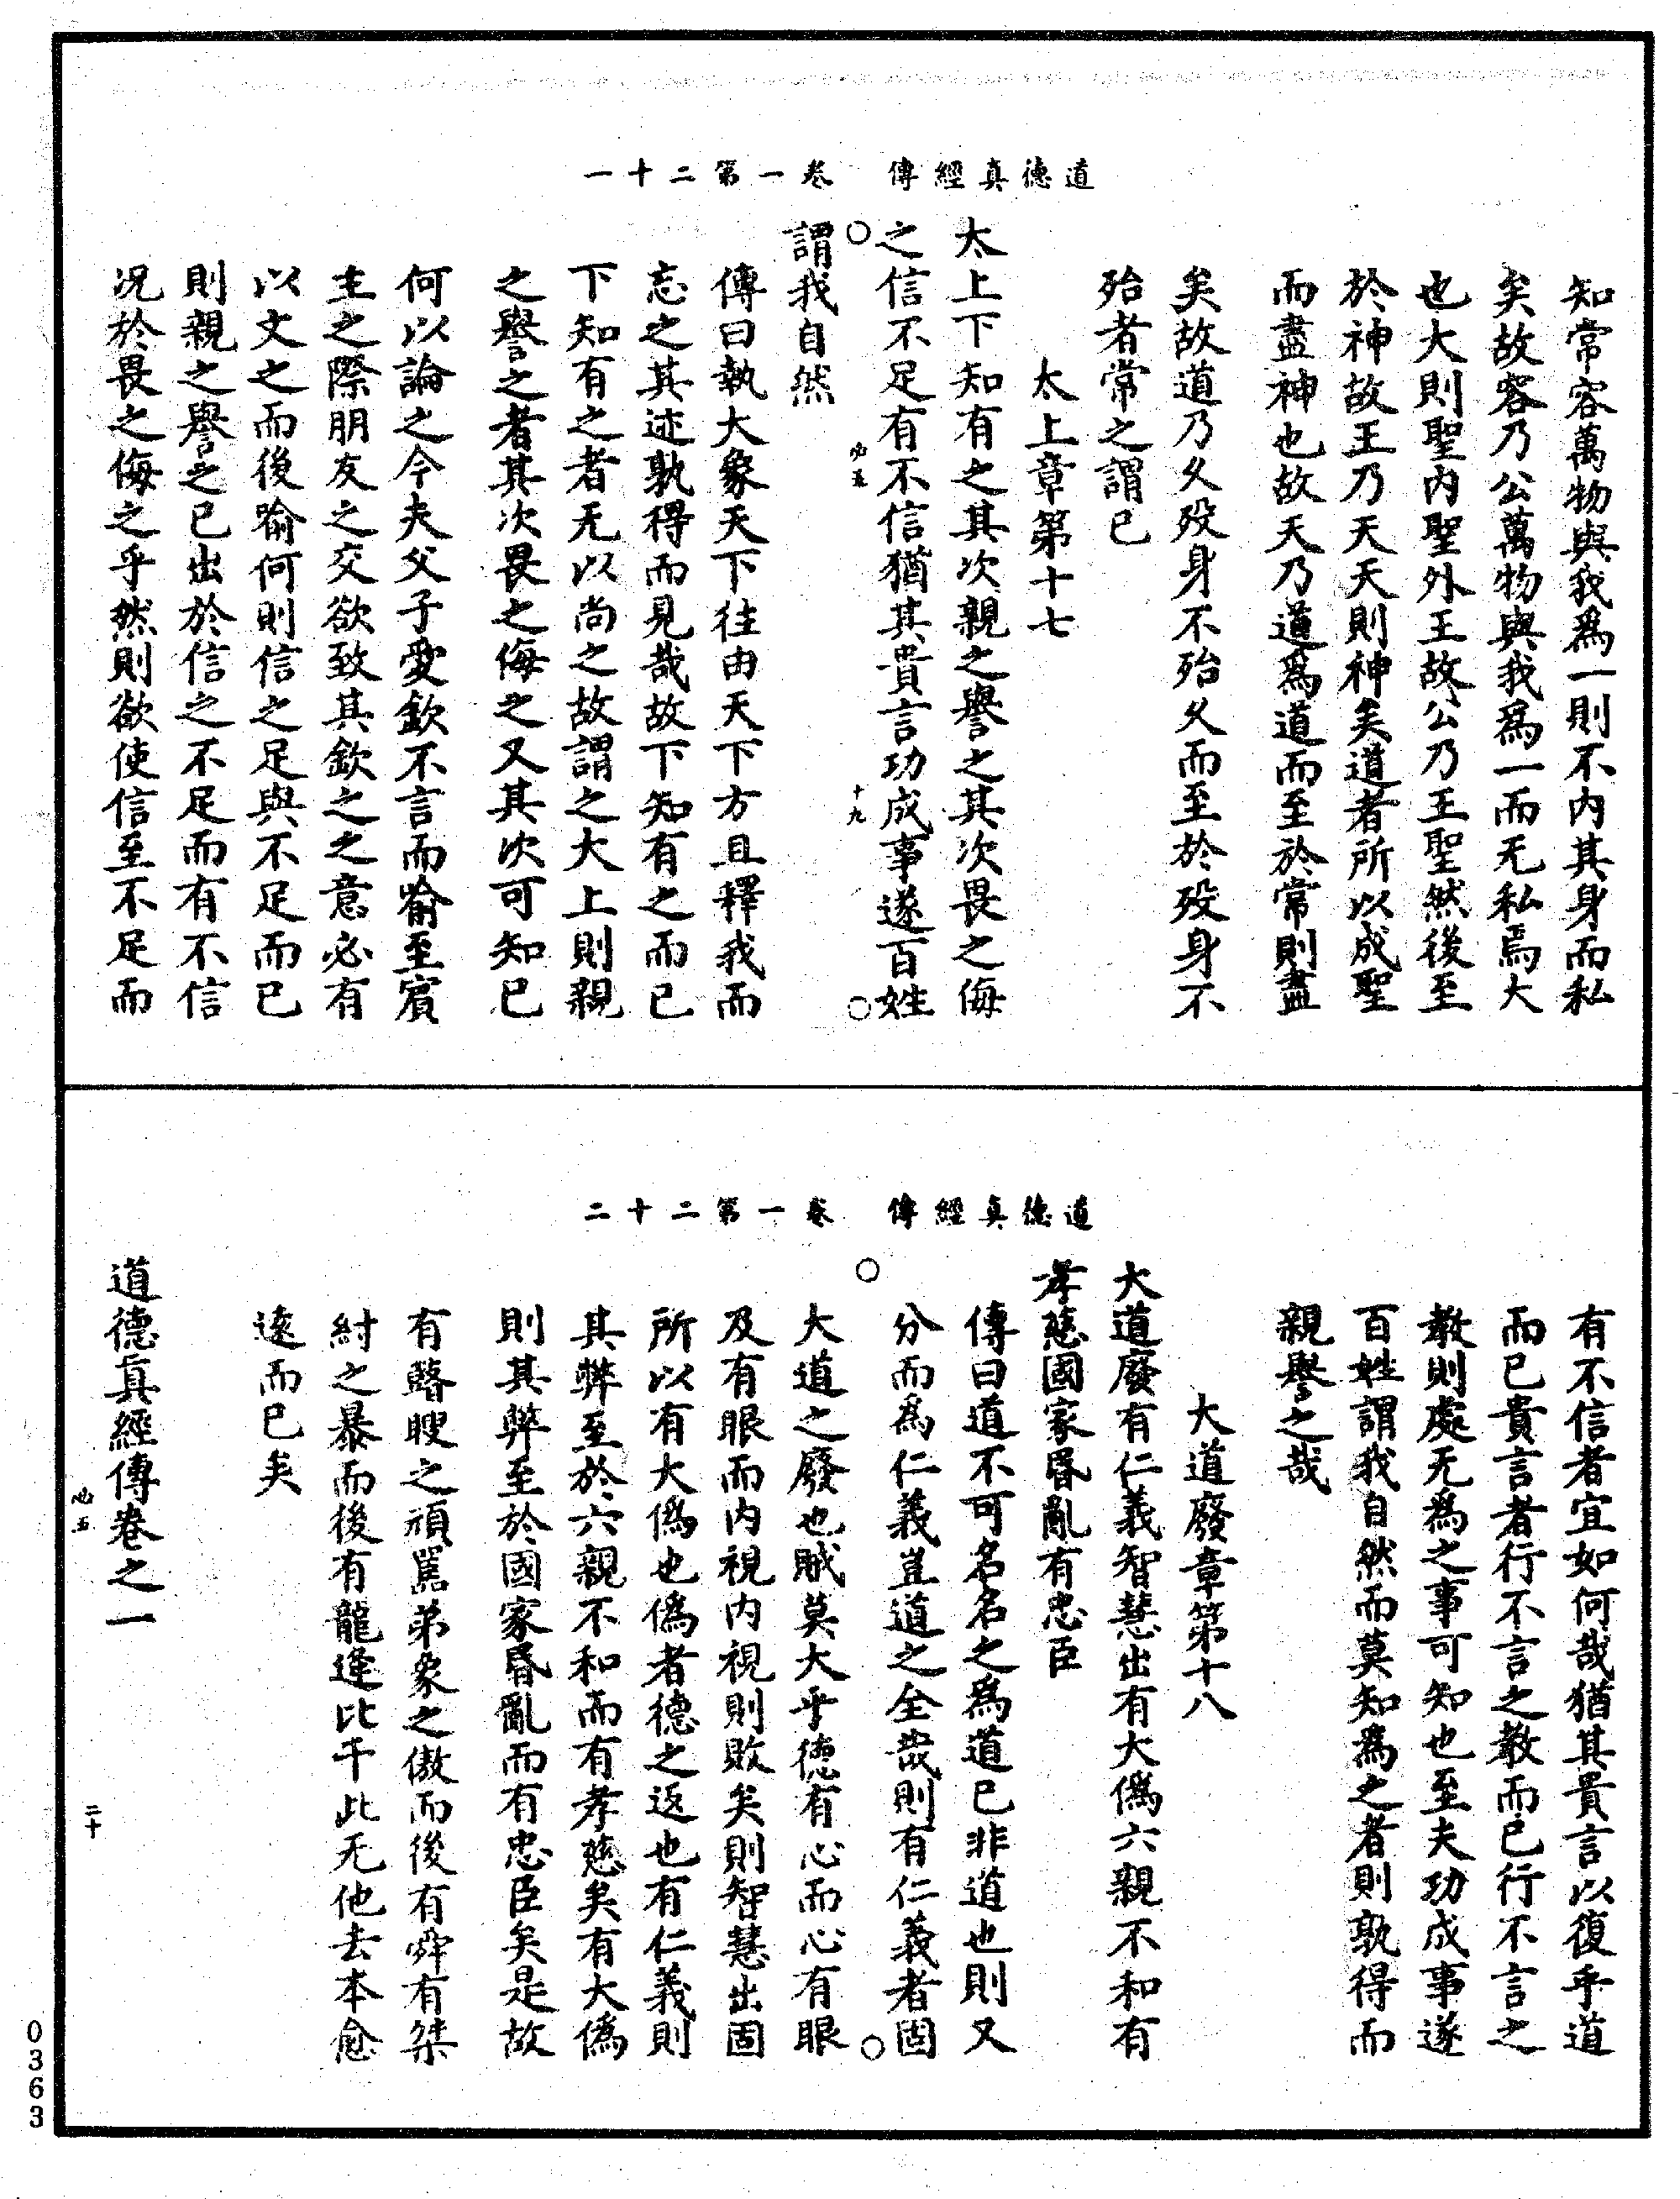 道德真經傳　卷一第二十一
知常容萬物與我爲一則不内其身而私
矣故容乃公萬物與我爲一而无私焉大
也大則聖内聖外王故公乃王聖然後至
於神故王乃天天則神矣道者所以成聖
而盡神也故天乃道爲道而至於常則盡
矣故道乃久歿身不殆久而至於歿身不
殆者常之謂已
太上章第十七
太上下知有之其次親之譽之其次畏之侮
之信不足有不信猶其貴言功成事遂百姓
必五
十九
謂我自然
傳曰執大象天下往由天下下方且釋我而
忘之其迹孰得而見哉故下知有之而已
下知有之者无以尚之故謂之大上則親
之譽之者其次畏之侮之又其次可知已
何以論之今夫父子愛欽不言而喻至賓
主之際朋友之交欲致其欽之之意必有
以文之而後喻何則信之足與不足而已
則親之譽之已出於信之不足而有不信
况於畏之侮之乎然則欲使信至不足而
道德真經傳　卷一第二十二
有不信者宜如何哉猶其貴言以復乎道
而已貴言者行不言之教而已行不言之
教則處无爲之事可知也至夫功成事遂
百姓謂我自然而莫知爲之者則孰得而
親譽之哉
大道廢章第十八
大道廢有仁義智慧出有大僞六親不和有
孝慈國家昬亂有忠臣
傳曰道不可名名之爲道已非道也則又
分而爲仁義豈道之全哉則有仁義者固
大道之廢也賊莫大乎德有心而心有眼
及有眼而内視内視則敗矣則智慧出固
所以有大僞也僞者德之返也有仁義則
其弊至於六親不和而有孝慈矣有大僞
則其弊至於國家昬亂而有忠臣矣是故
有瞽瞍之頑嚚弟象之傲而後有舜有桀
紂之暴而後有龍逄比干此无他去本愈
遠而已矣
道德真經傳卷之一
必五
二十
0363